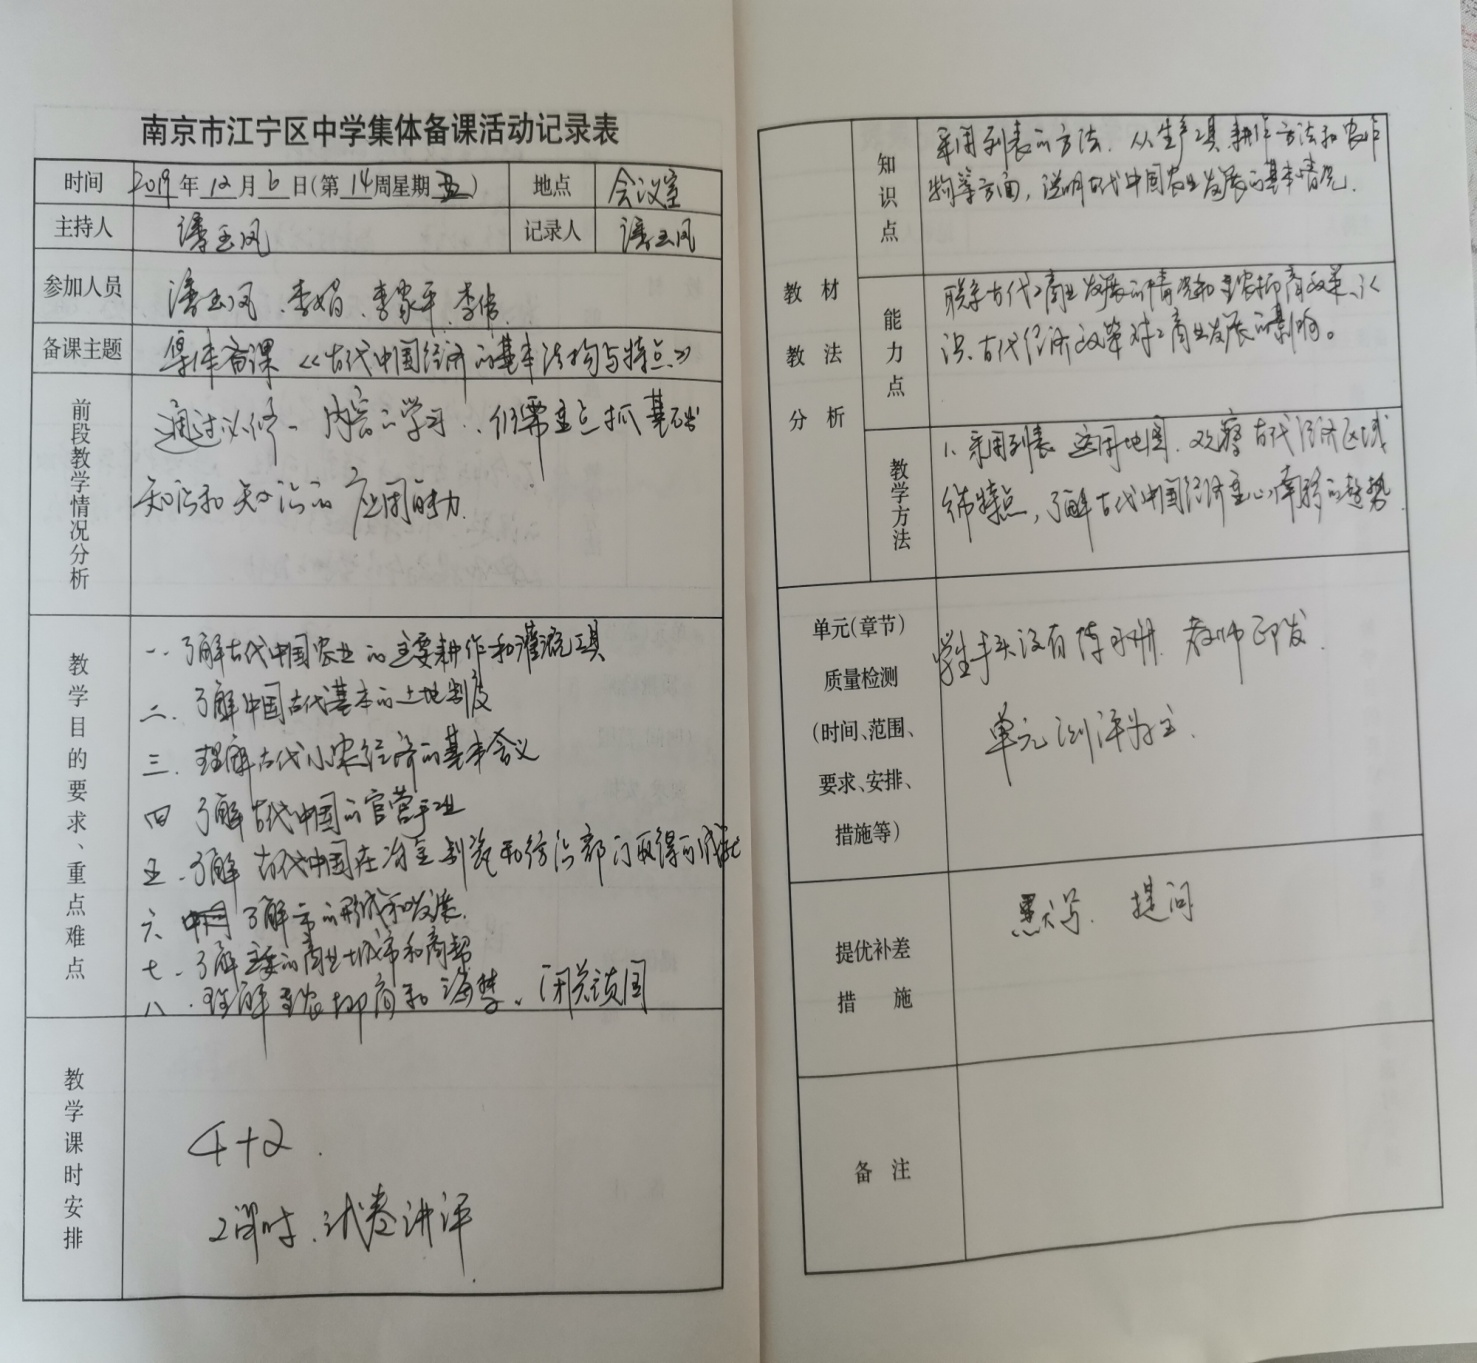 南京市江宁区中学集体备课活动记录表
时间 2019年12月6日(第14周星期五) 地点 会议室
主持人 潘玉凤 记录人 潘玉凤
参加人员 潘玉凤、李娟、李家平、李伟
备课主题 集体备课《古代中国经济的基本结构与特点》
前段教学情况分析
通过必修一内容的学习,仍需重点抓基础
知识和知识的应用能力.
教学目的要求、重点难点
一.了解古代中国农业的主要耕作和灌溉工具
二.了解中国古代基本的土地制度
三.理解古代小农经济的基本含义
四 了解古代中国的官营手工业
五.了解古代中国在冶金制瓷和纺织部门取得的成就
六 了解市的形成和发展.
七.了解主要的商业城市和商帮
八.理解重农抑商和海禁、闭关锁国
教学课时安排
4+2.
2课时.试卷讲评.
教材教法分析
知识点
采用列表的方法.从生产工具、耕作方法和农作
物等方面,说明古代中国农业发展的基本情况.
能力点
联系古代工商业发展的情况和重农抑商政策,认
识古代经济政策对工商业发展的影响。
教学方法
1、采用列表 运用地图.观察古代经济区域
分布特点,了解古代中国经济重心南移的趋势.
单元(章节)
质量检测
(时间、范围、
要求、安排、
措施等)
学生手头没有练习册.教师印发.
单元测评为主.
提优补差
措施
默写.提问
备注